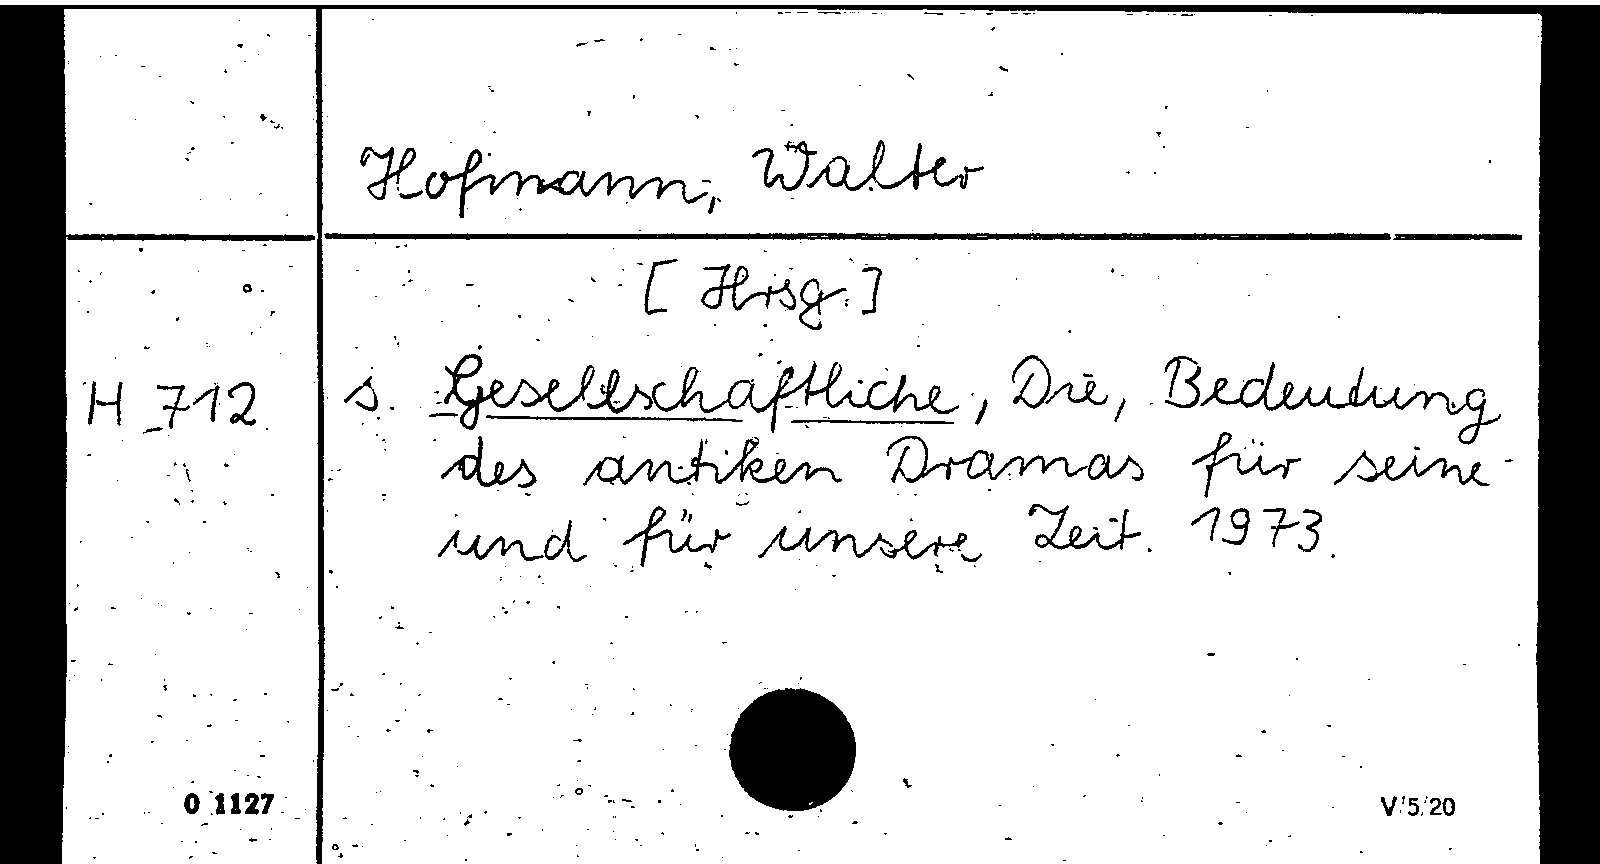 Hofmann, Walter
[Hrsg.]
H 712 s. Gesellschaftliche, Die, Bedeutung
des antiken Dramas für seine
und für unsere Zeit. 1973.
O 1127 V/5/20